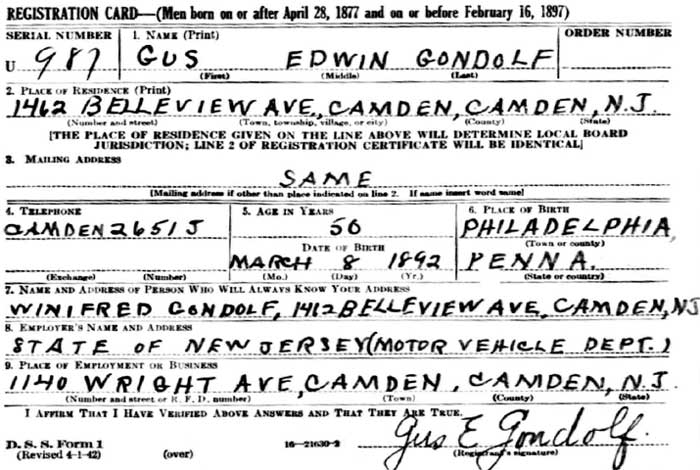 REGISTRATION CARD—(Men born on or after April 28, 1877 and on or before February 16, 1897)
SERIAL NUMBER 1. NAME (Print) ORDER NUMBER
U 987 GUS EDWIN GONDOLF
(First) (Middle) (Last)
2. PLACE OF RESIDENCE (Print)
1462 BELLEVIEW AVE, CAMDEN, CAMDEN, N.J.
(Number and street) (Town, township, village, or city) (County) (State)
[THE PLACE OF RESIDENCE GIVEN ON THE LINE ABOVE WILL DETERMINE LOCAL BOARD
JURISDICTION; LINE 2 OF REGISTRATION CERTIFICATE WILL BE IDENTICAL]
3. MAILING ADDRESS
SAME
[Mailing address if other than place indicated on line 2. If same insert word same]
4. TELEPHONE 5. AGE IN YEARS 6. PLACE OF BIRTH
CAMDEN 2651J 50 PHILADELPHIA
(Town or county)
DATE OF BIRTH
MARCH 8 1892 PENNA.
(Exchange) (Number) (Mo.) (Day) (Yr.) (State or country)
7. NAME AND ADDRESS OF PERSON WHO WILL ALWAYS KNOW YOUR ADDRESS
WINIFRED GONDOLF, 1412 BELLEVIEW AVE, CAMDEN, NJ
8. EMPLOYER'S NAME AND ADDRESS
STATE OF NEW JERSEY (MOTOR VEHICLE DEPT.)
9. PLACE OF EMPLOYMENT OR BUSINESS
1140 WRIGHT AVE, CAMDEN, CAMDEN, N.J.
(Number and street or R. F. D. number) (Town) (County) (State)
I AFFIRM THAT I HAVE VERIFIED ABOVE ANSWERS AND THAT THEY ARE TRUE.
Gus E Gondolf.
D. S. S. Form 1 16—21630-2 (Registrant's signature)
(Revised 4-1-42) (over)